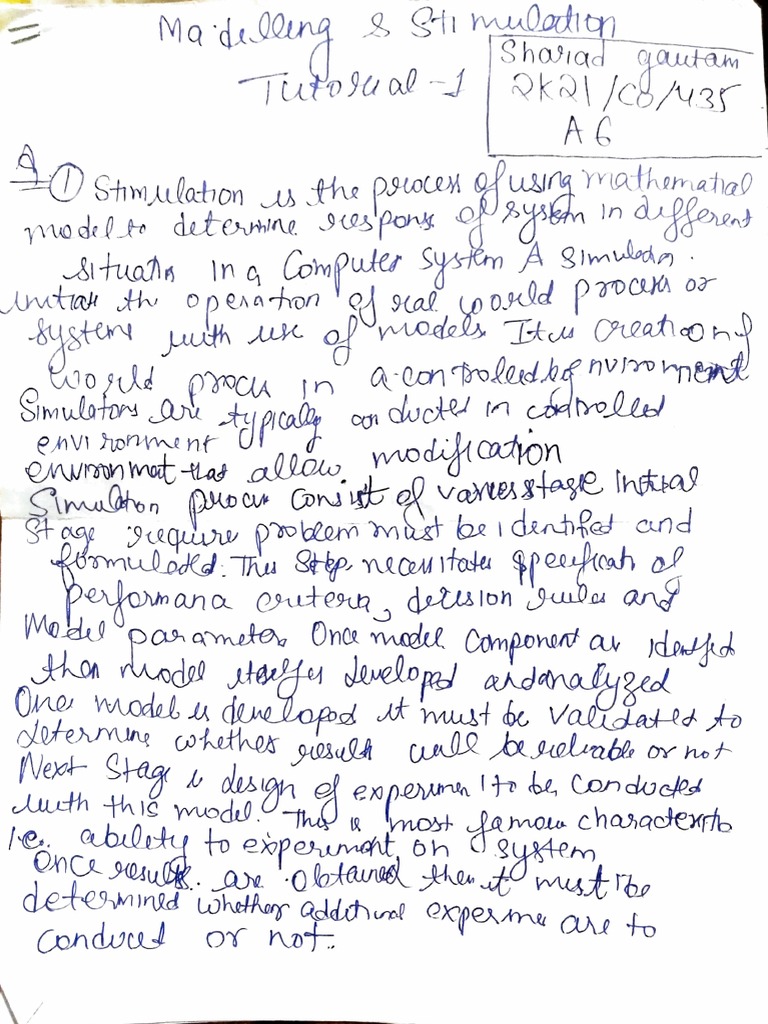 Modelling & Stimulation
Tutorial - 1
Sharad gautam
2K21/CO/435
A6
A
① Stimulation is the process of using mathematial
model to determine response of system in different
situatn in a Computer system A Simulatn.
imitats the operation of real world process or
systems with use of models. It is creation of
world procs in a controlled enviroment
Simulators are typically conducted in controlled
environment
environmet that allow modification
Simulaton procss consist of varies stage initial
Stage require problem must be identifed and
formulated. This step necessitates specificatn of
performana critera, decision rules and
Model parameters. Once model component are identifed
then model itself is developed and analyzed
One model is developed it must be validated to
determine whether result will be reliable or not
Next Stage is design of experiment to be conducted
with this model. This is most famous characterists
i.e. ability to experiment on system
Once results are obtained then it must be
determined whether additinal experime are to
conduced or not.